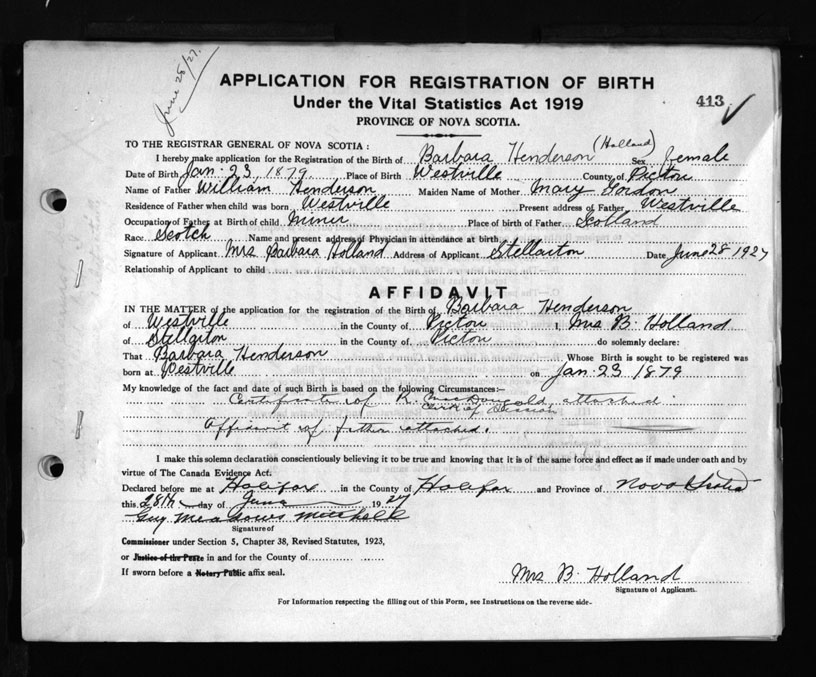 June 28/27.
APPLICATION FOR REGISTRATION OF BIRTH
Under the Vital Statistics Act 1919
413
PROVINCE OF NOVA SCOTIA.
TO THE REGISTRAR GENERAL OF NOVA SCOTIA:
(Holland)
I hereby make application for the Registration of the Birth of Barbara Henderson Sex female
Date of Birth Jan. 23, 1879. Place of Birth Westville County of Pictou
Name of Father William Henderson Maiden Name of Mother Mary Gordon
Residence of Father when child was born Westville Present address of Father Westville
Occupation of Father at Birth of child miner Place of birth of Father Scotland
Race Scotch Name and present address of Physician in attendance at birth
Signature of Applicant Mrs Barbara Holland Address of Applicant Stellarton Date June 28 1927
Relationship of Applicant to child
AFFIDAVIT
IN THE MATTER of the application for the registration of the Birth of Barbara Henderson
of Westville in the County of Pictou I, Mrs B. Holland
of Stellarton in the County of Pictou do solemnly declare:
That Barbara Henderson Whose Birth is sought to be registered was
born at Westville on Jan. 23 1879
My knowledge of the fact and date of such Birth is based on the following Circumstances:—
Certificate of R. MacDougald attached.
Clerk of Session
Affidavit of father attached.
I make this solemn declaration conscientiously believing it to be true and knowing that it is of the same force and effect as if made under oath and by
virtue of The Canada Evidence Act.
Declared before me at Halifax in the County of Halifax and Province of Nova Scotia
this 28th day of June 1927
Guy Meadows Mitchell
Signature of
Commissioner under Section 5, Chapter 38, Revised Statutes, 1923,
or Justice of the Peace in and for the County of
If sworn before a Notary Public affix seal.
Mrs B. Holland
Signature of Applicant.
For Information respecting the filling out of this Form, see Instructions on the reverse side.